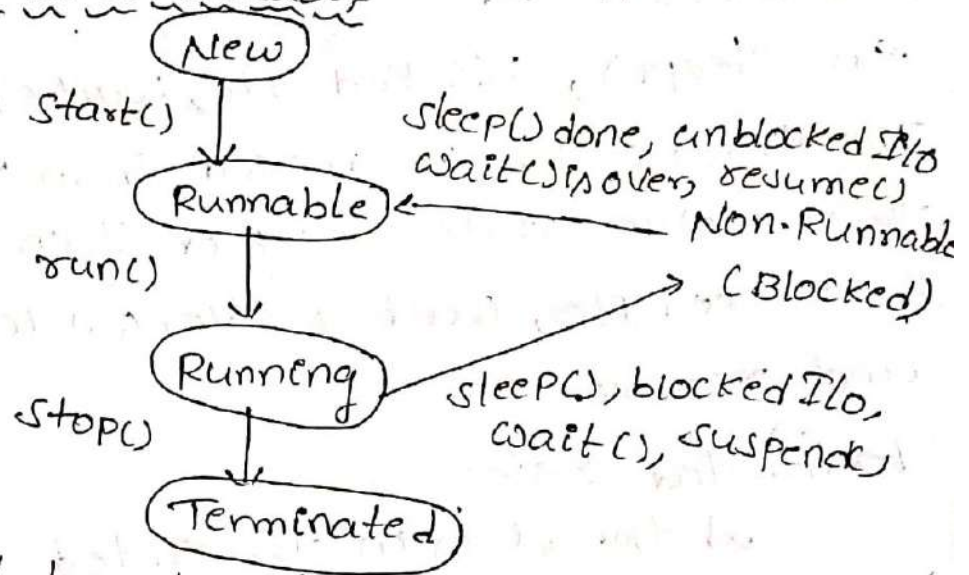 New
start()
sleep() done, unblocked I/o
wait() is over, resume()
Runnable
Non-Runnable
run()
(Blocked)
Running
sleep(), blocked I/o,
stop()
wait(), suspend()
Terminated